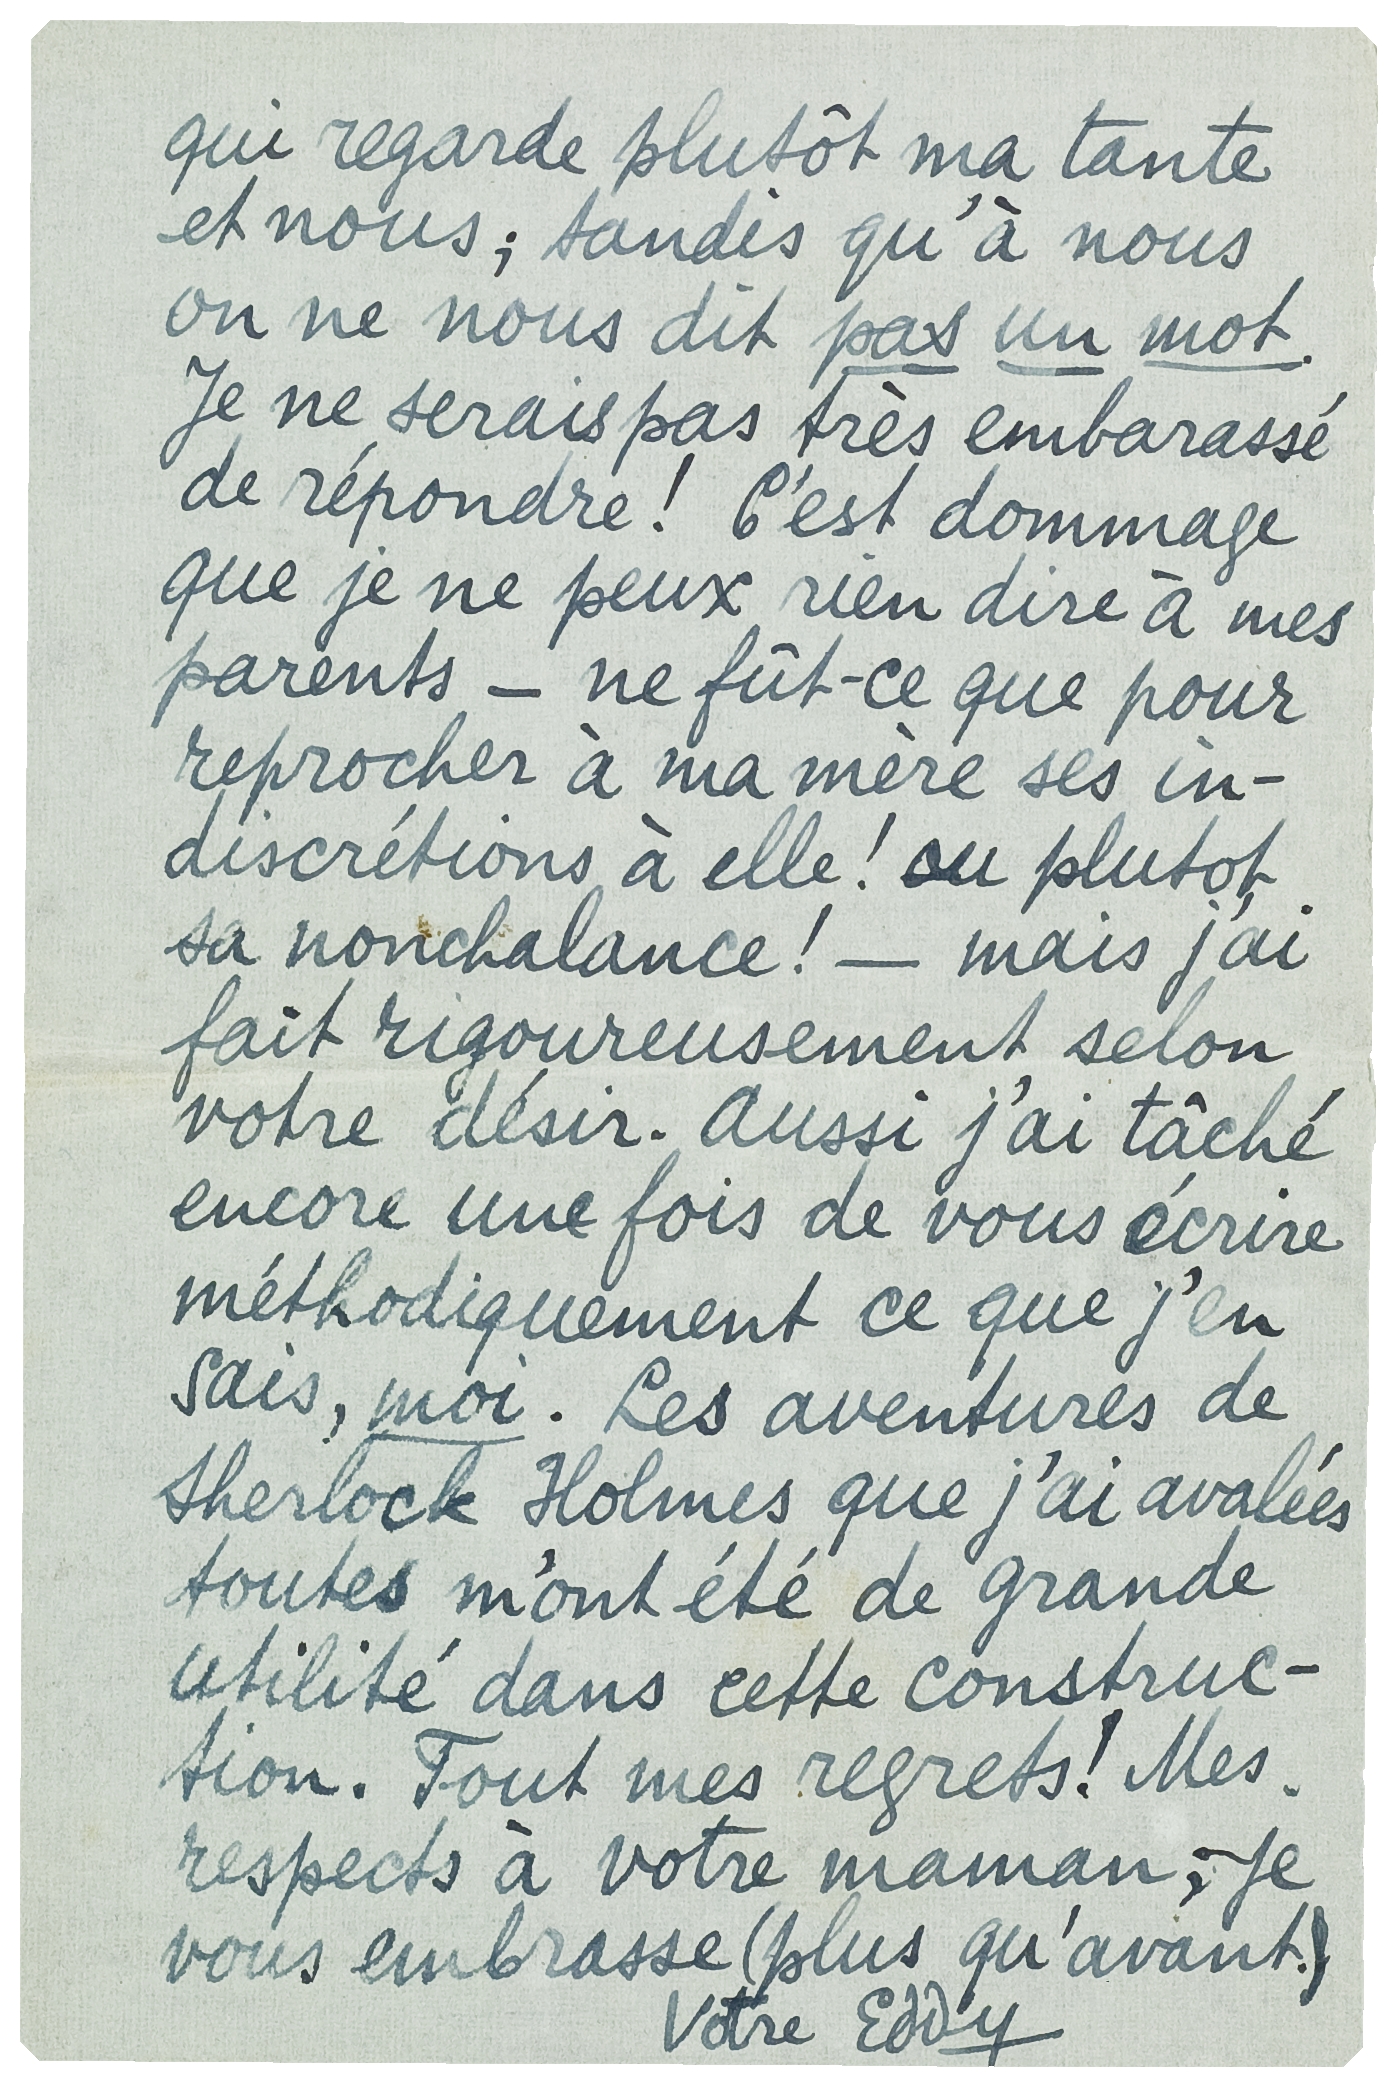 qui regarde plutôt ma tante
et nous; tandis qu'à nous
on ne nous dit pas un mot.
Je ne serais pas très embarassé
de répondre! C'est dommage
que je ne peux rien dire à mes
parents — ne fût-ce que pour
reprocher à ma mère ses in-
discrétions à elle! ou plutot
sa nonchalance! — mais j'ai
fait rigoureusement selon
votre désir. Aussi j'ai tâché
encore une fois de vous écrire
méthodiquement ce que j'en
sais, moi. Les aventures de
Sherlock Holmes que j'ai avalées
toutes m'ont été de grande
utilité dans cette construc-
tion. Tout mes regrets! Mes
respects à votre maman; Je
vous embrasse (plus qu'avant!)
Votre Eddy